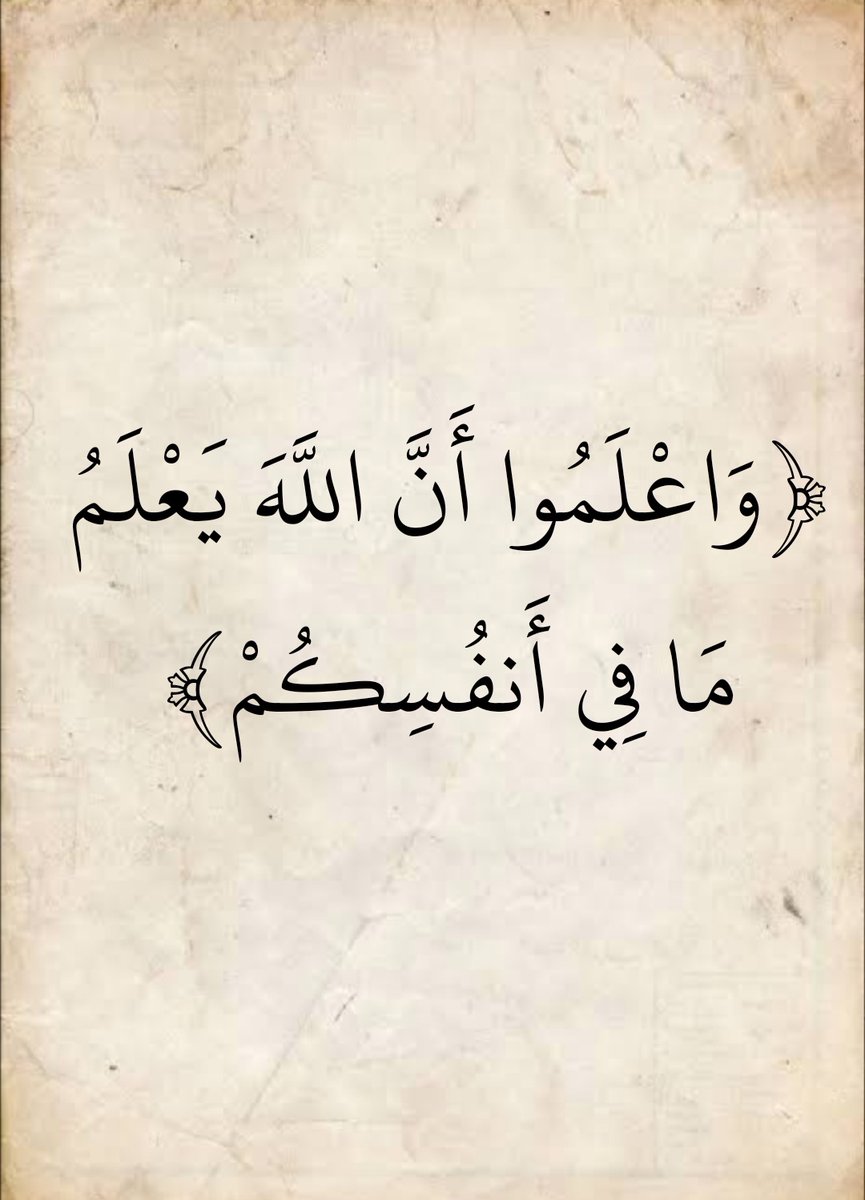 ﴿وَاعْلَمُوا أَنَّ اللَّهَ يَعْلَمُ
مَا فِي أَنفُسِكُمْ﴾